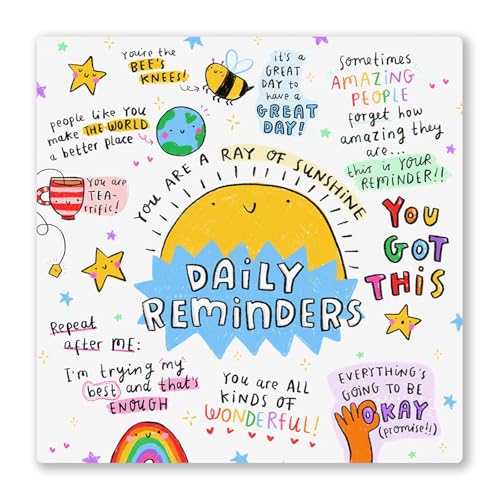 you're the
BEE'S
KNEES!
it's a
GREAT
DAY to
have a
GREAT
DAY!
sometimes
AMAZING
PEOPLE
forget how
amazing they
are...
this is YOUR
REMINDER!!
people like YOU
make THE WORLD
a better place
You are
TEA-
rrific!
YOU ARE A RAY OF SUNSHINE
YOU
GOT
THIS
DAILY
REMINDERS
Repeat
after ME:
I'm trying my
best and that's
ENOUGH
You are ALL
KINDS OF
WONDERFUL!
EVERYTHING'S
GOING TO BE
OKAY
(promise!!)